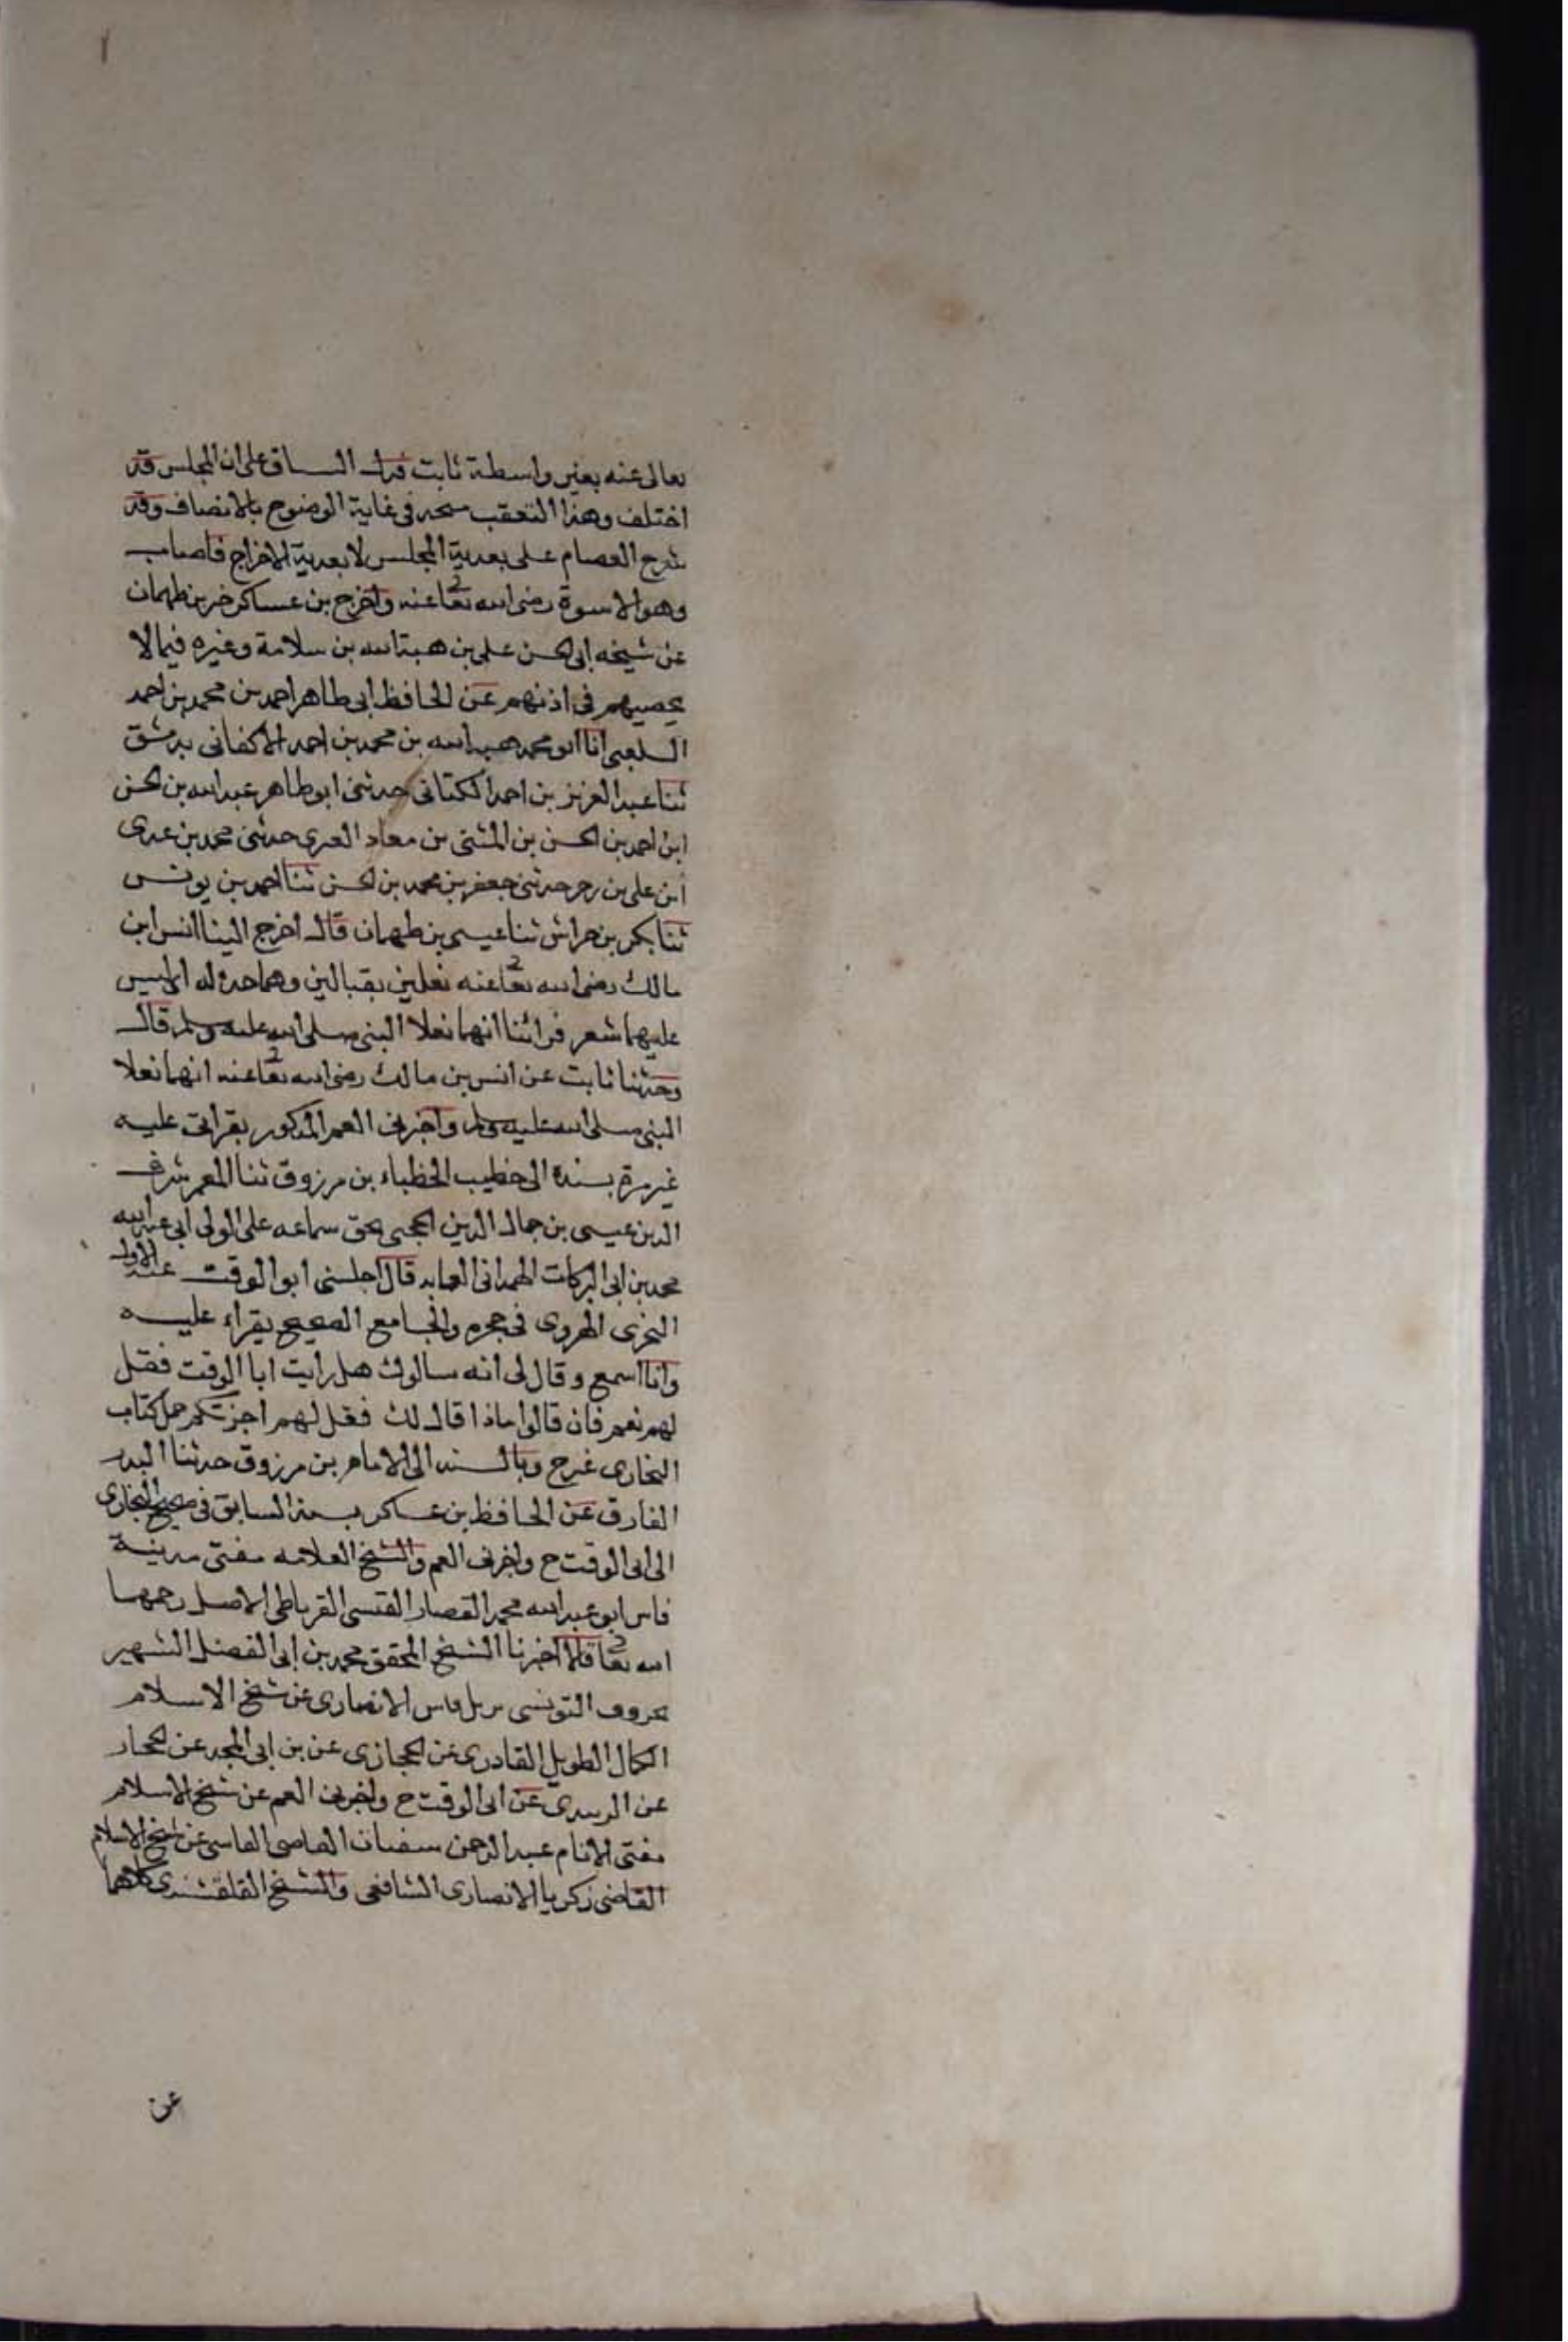 تعالى عنه بغير واسطة ثابت فدل السياق على ان المجلس قد
اختلف وهذا التعقب متجه في غاية الوضوح بالانصاف وقد
شرح العصام على بعدية المجلس لا بعدية الاخراج فاصاب
وهو الاسوة رضي الله تعا عنه واخرج بن عساكر خبر بن طهمان
عن شيخه ابي الحسن علي بن هبة الله بن سلامة وغيره فيما لا
يحصيهم في اذنهم عن الحافظ ابي طاهر احمد بن محمد بن احمد
السلفي انا ابو محمد هبة الله بن محمد بن احمد الاكفاني بدمشق
ثنا عبد العزيز بن احمد الكتاني حدثني ابو طاهر عبد الله بن الحسن
ابن احمد بن الحسن بن المثنى بن معاد حدثني محمد بن عدى
ابن علي بن حدثني جعفر بن محمد بن الحسن ثنا احمد بن يونس
ثنا بكر بن خراش ثنا عيسى بن طهمان قال اخرج الينا انس ابن
مالك رضي الله تعا عنه نعلين بقبالين وهما ليس
عليهما شعر فرائنا انهما نعلا النبي صلى الله عليه وسلم قال
وحدثنا ثابت عن انس بن مالك رضي الله تعا عنه انهما نعلا
النبي صلى الله عليه وسلم واخبرني العم المذكور بقراتي عليه
غير مرة بسنده الى خطيب الخطباء بن مرزوق ثنا المعمر شرف
الدين عيسى بن جمال الدين الحجبي بحق سماعه على الولي ابي عبد الله
محمد بن ابي البركات الهمداني العابد قال اجلسني ابو الوقت عبد الاول
السجزى الهروى في حجره والجامع الصحيح يقراء عليه
وانا اسمع وقال لي انه سالوك هل رايت ابا الوقت فقل
لهم نعم فان قالوا ماذا قال لك فقل لهم اجزتكم حمل كتاب
البخارى عني ح وبالسند الى الامام بن مرزوق حدثنا البدر
الفارقي عن الحافظ بن عساكر بسنده السابق في صحيح البخارى
الى ابي الوقت ح واخبرني العم والشيخ العلامه مفتى مدينة
فاس ابو عبد الله محمد القصار القيسي الغرناطي الاصل رحمهما
الله تعا قالا اخبرنا الشيخ المحقق محمد بن ابي الفضل الشهير
بخروف التونسي نزيل فاس الانصارى عن شيخ الاسلام
الكمال الطويل القادرى عن الحجازى عن بن ابي المجد عن الحجار
عن الزبيدى عن ابي الوقت ح واخبرني العم عن شيخ الاسلام
مفتى الانام عبد الرحمن سفيان العاصي الفاسي عن شيخ الاسلام
القاضي زكريا الانصارى الشافعي والشيخ القلقشندى كلاهما
عن